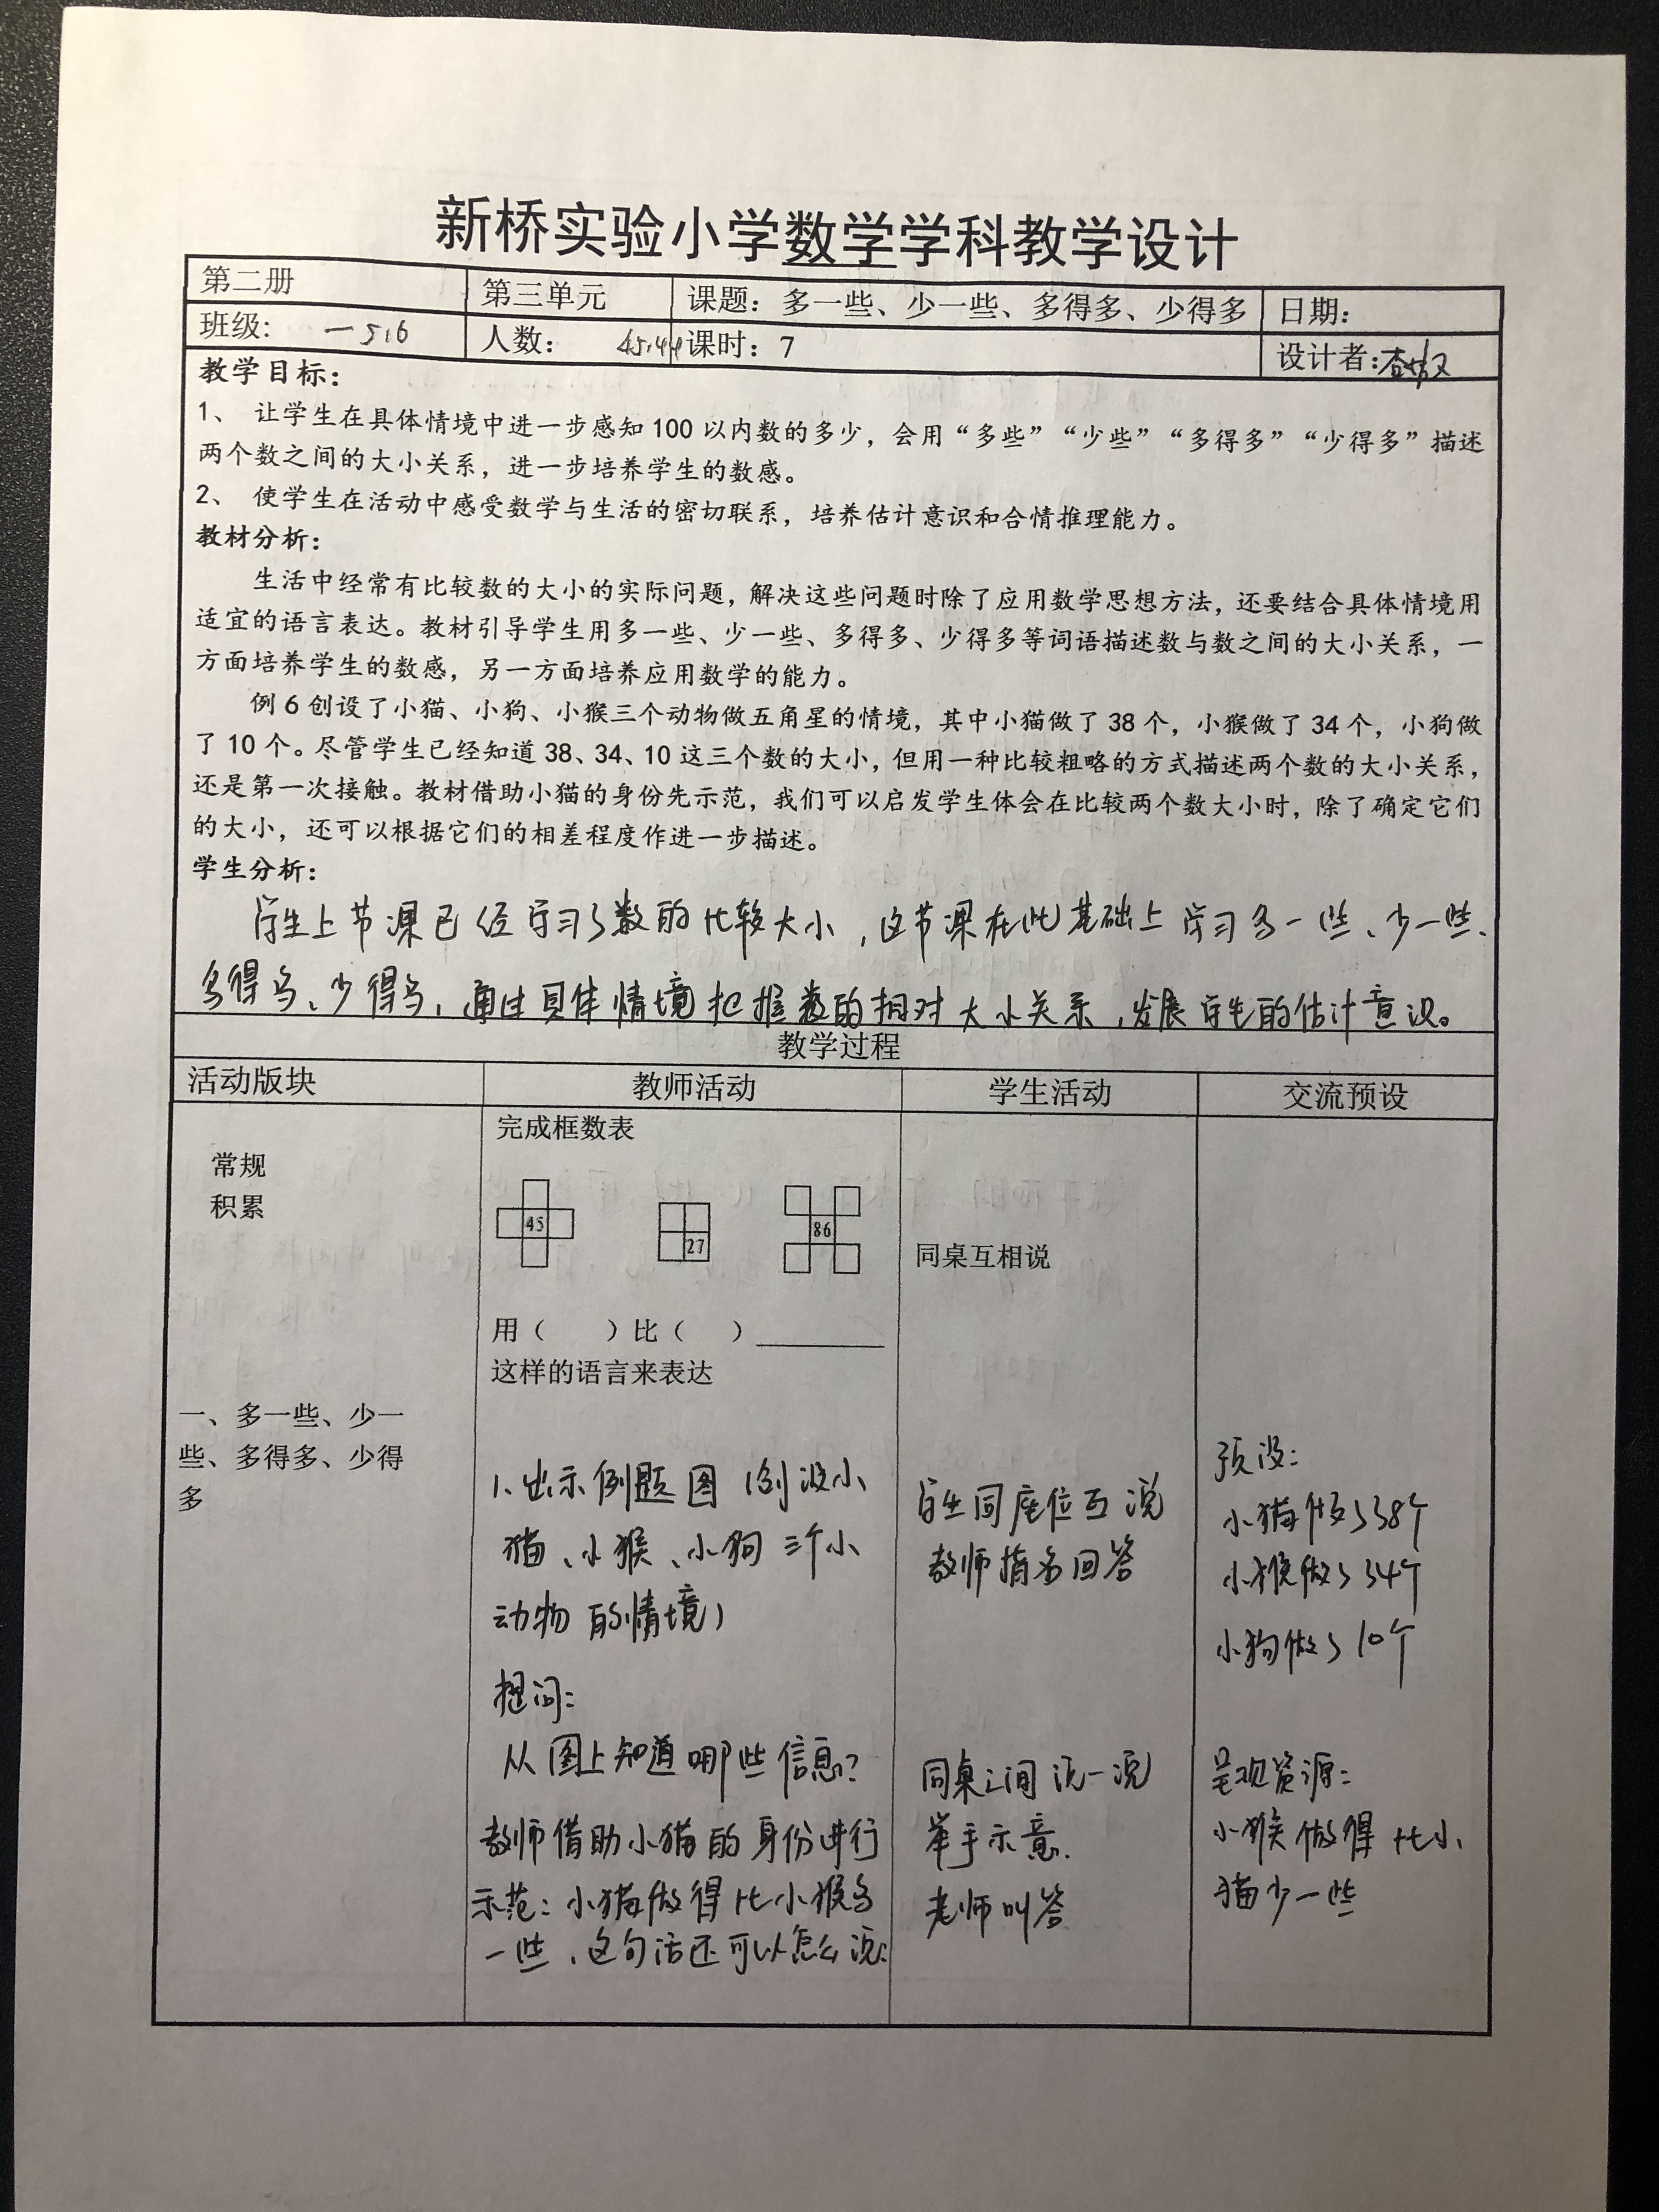 新桥实验小学数学学科教学设计
第二册 第三单元 课题：多一些、少一些、多得多、少得多 日期：
班级: 一5,6 人数： 45,44 课时：7 设计者:
教学目标：
1、 让学生在具体情境中进一步感知100以内数的多少，会用“多些”“少些”“多得多”“少得多”描述
两个数之间的大小关系，进一步培养学生的数感。
2、 使学生在活动中感受数学与生活的密切联系，培养估计意识和合情推理能力。
教材分析：
生活中经常有比较数的大小的实际问题，解决这些问题时除了应用数学思想方法，还要结合具体情境用
适宜的语言表达。教材引导学生用多一些、少一些、多得多、少得多等词语描述数与数之间的大小关系，一
方面培养学生的数感，另一方面培养应用数学的能力。
例6创设了小猫、小狗、小猴三个动物做五角星的情境，其中小猫做了38个，小猴做了34个，小狗做
了10个。尽管学生已经知道38、34、10这三个数的大小，但用一种比较粗略的方式描述两个数的大小关系，
还是第一次接触。教材借助小猫的身份先示范，我们可以启发学生体会在比较两个数大小时，除了确定它们
的大小，还可以根据它们的相差程度作进一步描述。
学生分析：
学生上节课已经学习了数的比较大小，这节课在此基础上学习多一些、少一些、
多得多、少得多，通过具体情境把握数的相对大小关系，发展学生的估计意识。
教学过程
活动版块 教师活动 学生活动 交流预设
常规
积累
完成框数表
45 27 86
用（ ）比（ ）
这样的语言来表达
同桌互相说
一、多一些、少一
些、多得多、少得
多
1、出示例题图（创设小
猫、小猴、小狗三个小
动物的情境）
提问：
从图上知道哪些信息？
教师借助小猫的身份进行
示范：小猫做得比小猴多
一些，这句话还可以怎么说：
学生同座位互说
教师指名回答
同桌之间说一说
举手示意.
老师叫答
预设：
小猫做了38个
小猴做了34个
小狗做了10个
呈现资源：
小猴做得比小
猫少一些